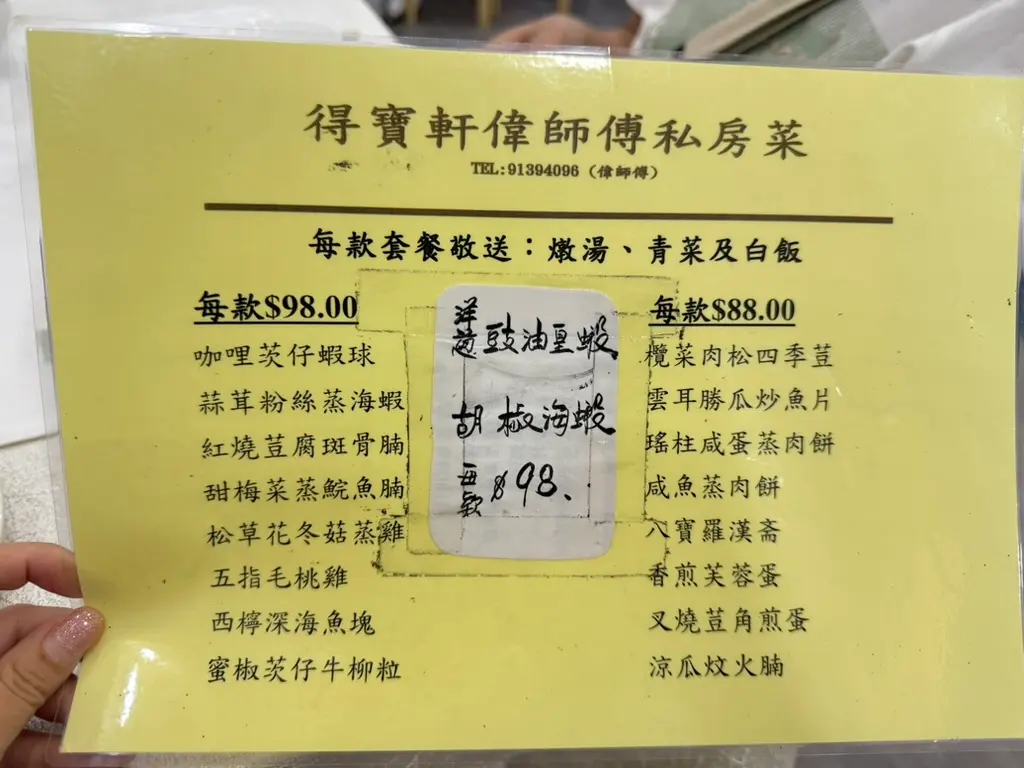 得寶軒偉師傅私房菜
TEL:91394096 (偉師傅)
每款套餐敬送：燉湯、青菜及白飯
每款$98.00
咖哩茨仔蝦球
蒜茸粉絲蒸海蝦
紅燒荳腐斑骨腩
甜梅菜蒸鯇魚腩
松草花冬菇蒸雞
五指毛桃雞
西檸深海魚塊
蜜椒茨仔牛柳粒
洋葱豉油皇蝦
胡椒海蝦
每款$98.
每款$88.00
欖菜肉松四季荳
雲耳勝瓜炒魚片
瑤柱咸蛋蒸肉餅
咸魚蒸肉餅
八寶羅漢斋
香煎芙蓉蛋
叉燒荳角煎蛋
涼瓜炆火腩